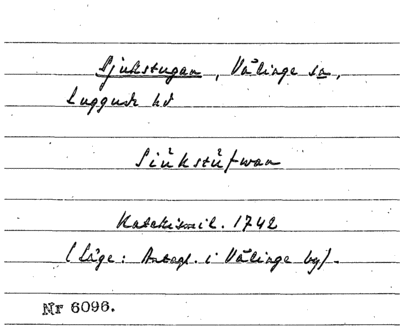 Sjukstugan, Välinge sn,
Luggude hd
Siükstüfwan
Katekismil. 1742
(Läge: Antagl. i Välinge by).
Nr 6096.